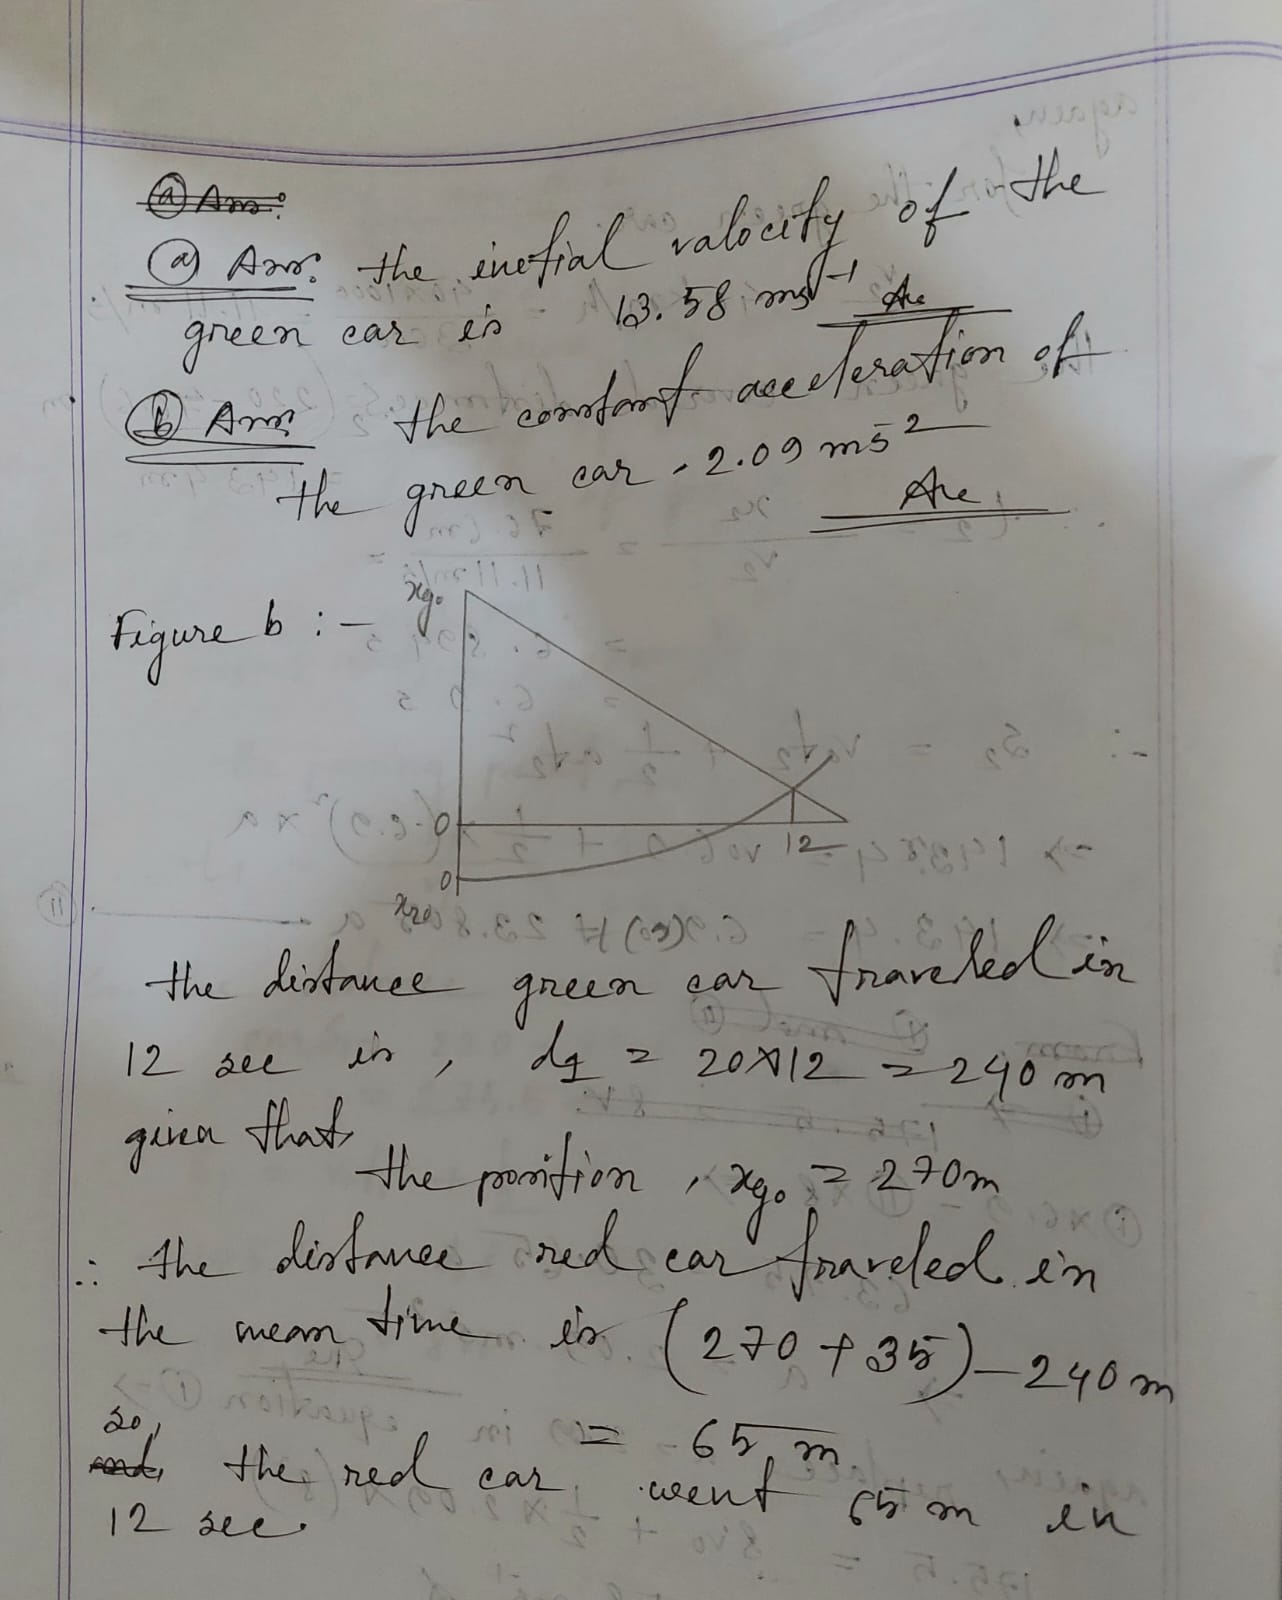 (a) Ans:
(a) Ans: the inetial valocity of the
green car is 13.58 ms⁻¹ Ans
(b) Ans the constant acceleration of
the green car - 2.09 ms⁻²
Ans
Figure b :-
xg₀
0
12
0
xr₀
the distance green car traveled in
12 sec is, d₁ = 20×12 = 240 m
given that,
the position, xg₀ = 270m
∴ the distance red car traveled in
the mean time is (270 + 35) - 240 m
= 65 m
so,
and, the red car went 65 m in
12 sec.